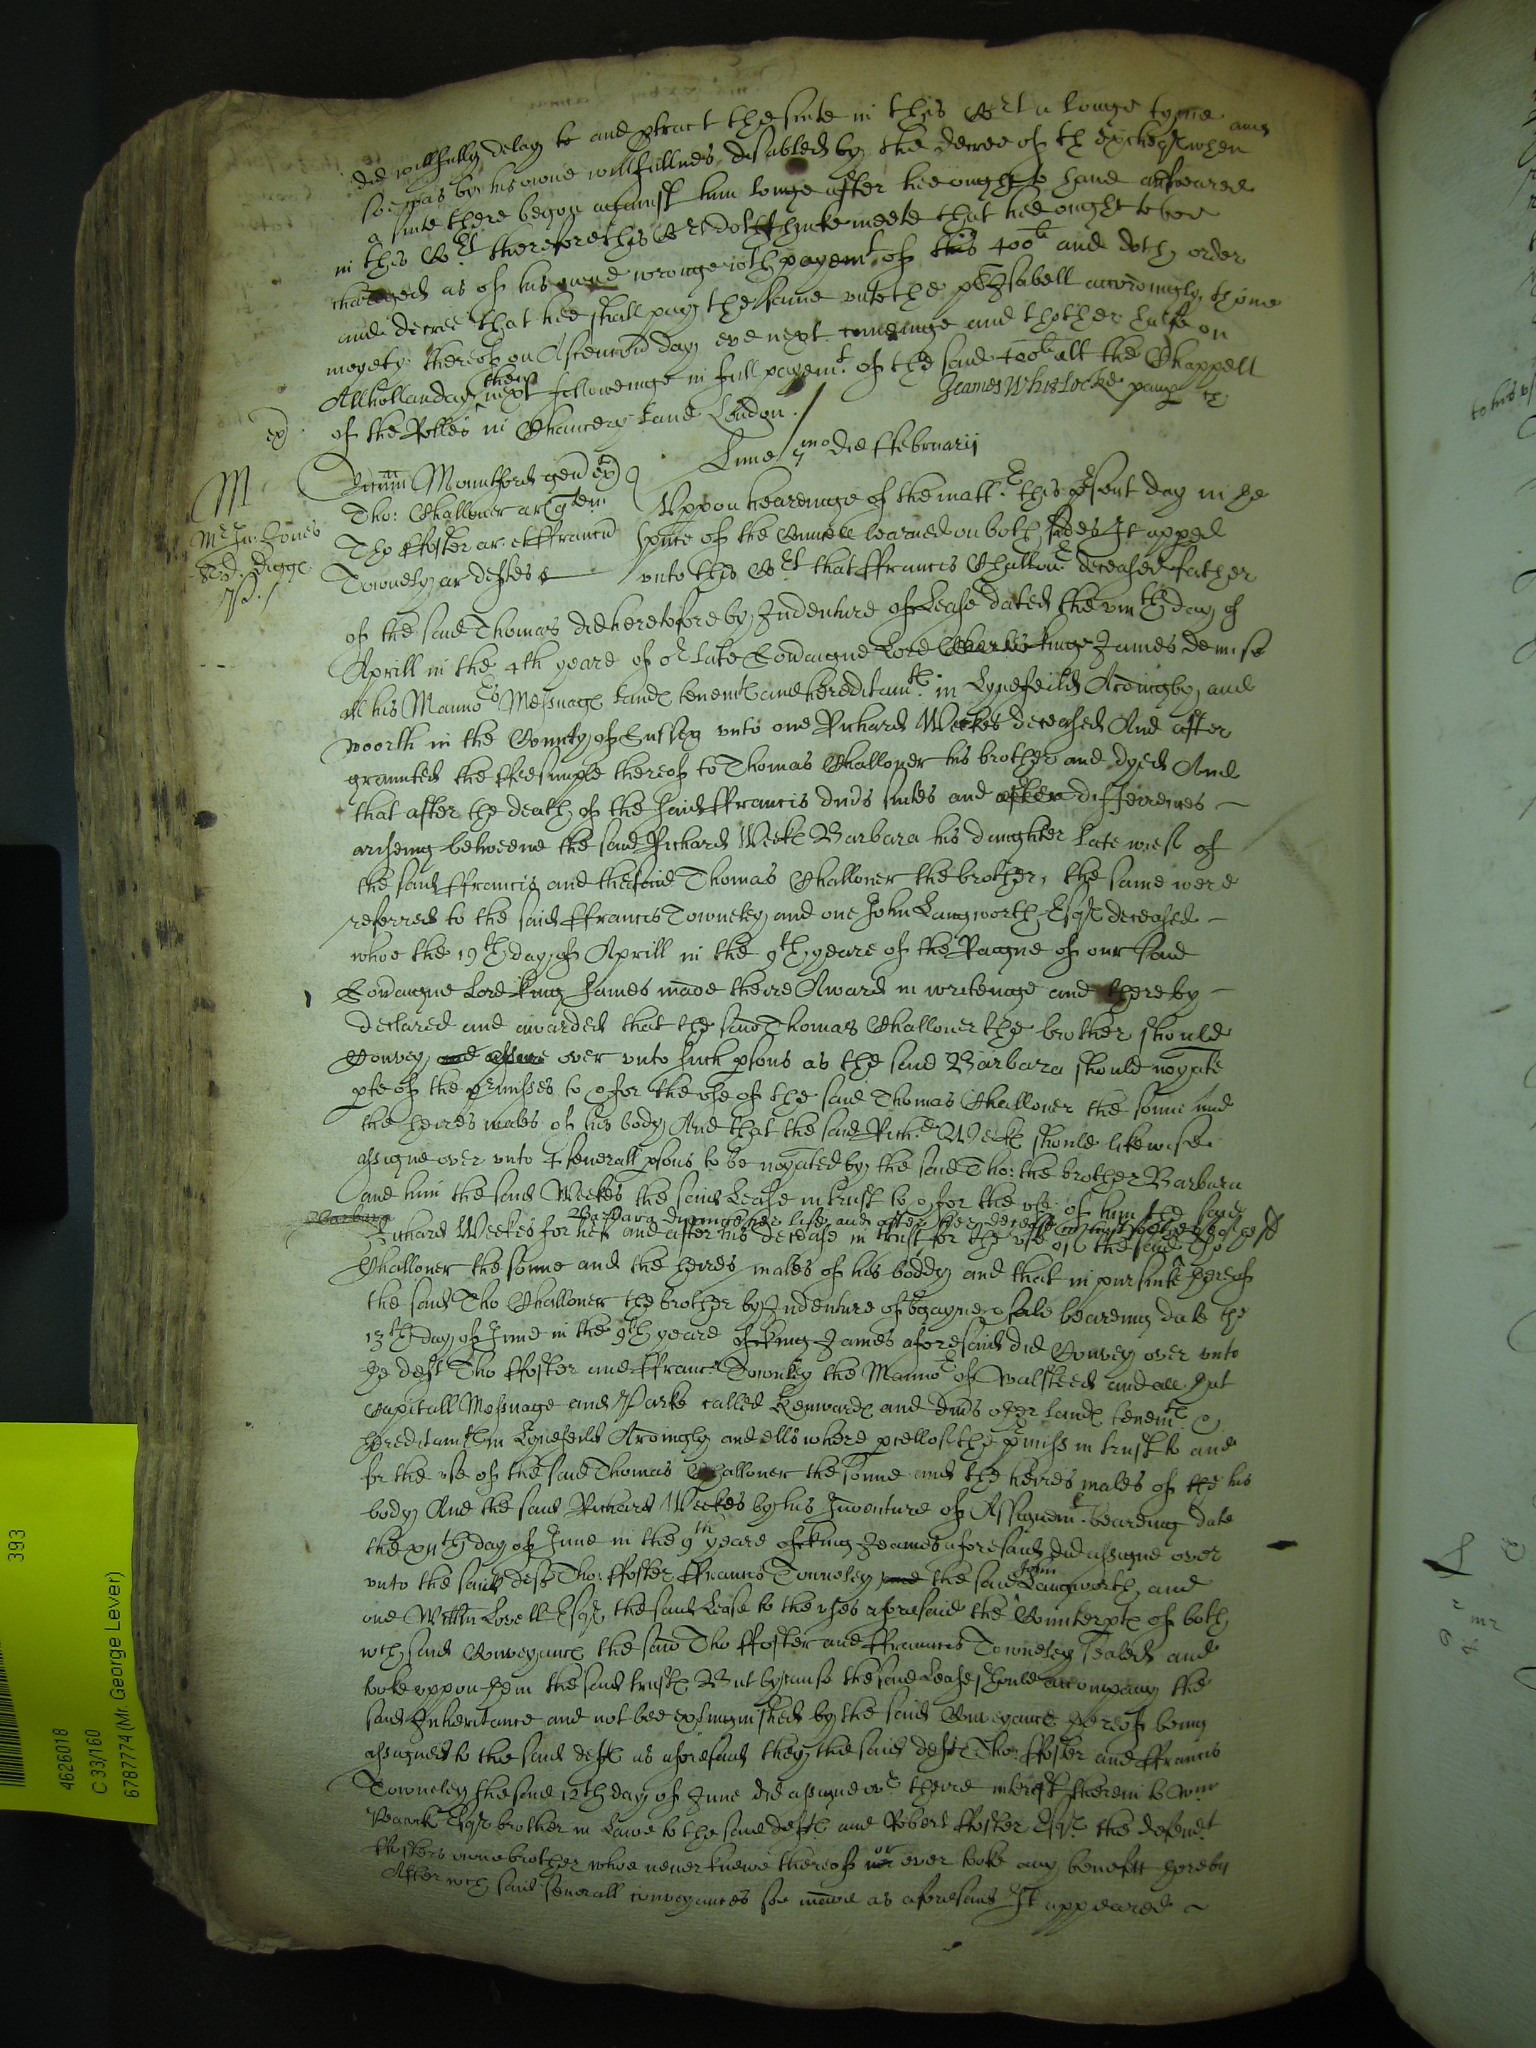 did willfully delay to and ptract the suite in this Cort a longe tyme and
soe was by his owne willfullnes disabled by the decree of thexcheqr when
a suite there begon against him longe after hee ought to have appeared
in this Cort therefore this Cort doth thinke meete that hee ought to bee
charged as of his owne wronge wth paymt of this 400li and doth order
and decree that hee shall pay the same unto the pl Isabell accordingly thone
moyety thereof on Ascention day eve next comeinge and thother halfe on
Allhollanday then next followeinge in full paymt of the said 400li att the Chappell
of the Rolles in Chancery Lane London
James Whitlocke
ex
Lune 7mo die ffebruarij
M
Mountford gen ex
Tho: Challoner ar quer
Tho ffoster ar et ffrancus
Towneley ar defts
Mr Jn: Jones
Sr D. Digge
Uppon heareinge of the mattr this psent day in the
psnce of the Councell learned on both sides It apped
unto this Cort that ffrancis Challonr deceased father
of the said Thomas did heretofore by Indenture of Lease dated the viiith day of
Aprill in the 4th yeare of or late Soveraigne Lord Charles kinge James demise
all his Mannors Messuage Lands tenemts and hereditamts in Lynefeild Ardingly and
woorth in the County of Sussex unto one Richard Weekes deceased And after
graunted the ffee simple thereof to Thomas Challoner his brother and dyed And
that after the death of the said ffrancis divs suites and after differences
ariseing betweene the said Richard Weekes Barbara his daughter late wief of
the said ffrancis and the said Thomas Challoner the brother, the same were
referred to the said ffrancis Towneley and one John Langworth Esqr deceased
whoe the 19th day of Aprill in the 9th yeare of the Raigne of our said
Soveraigne Lord king James made theire Award in writeinge and thereby
declared and awarded that the said Thomas Challoner the brother should
Convey and assure over unto such psons as the said Barbara should noiate
pte of the prmisses to & for the use of the said Thomas Challoner the sonne and
the heires males of his body And that the said Richd Weekes should likewise
assigne over unto 4 severall psons to be noiated by the said Tho: the brother Barbara
and him the said Weekes the said Lease in trust to & for the use of him the said
Barbara Barbara duringe her life and after her decease in trust for the use of the sd
Richard Weekes for life and after his decease in trust for the use of the said Tho
Challoner the sonne and the heires males of his boddy and that in pursuite hereof
the said Tho Challoner the brother by Indenture of bargayne & sale beareing date the
13th day of June in the 9th yeare of king James aforesaid did Convey over unto
the deft Tho ffoster and ffrancs Towneley the Mannor of Walsteed and all that
Capitall Messuage and Parke called Kenwards and divs other Lands tenemts &
hereditamts in Lynefeild Ardingly and ellswhere pcell of the prmiss in trust to and
for the use of the said Thomas Challoner the sonne and the heires males of the his
body And the said Richard Weekes by his Indenture of Assignemt beareing date
the xiith day of June in the 9th yeare of king James aforesaid did assigne over
unto the said defts Tho: ffoster ffrancis Towneley and the said John Langworth and
one Willm Lovell Esqr the said Lease to the uses aforesaid the Counterpts of both
wch said Conveyancs the said Tho ffoster and ffrauncis Towneley sealed and
tooke uppon them the said trusts But because the said Lease should accompany the
said Inheritance and not bee extinguished by the said Conveyance thereof being
assigned to the said defts as aforesaid they the said defts Tho: ffoster and ffrancis
Towneley the said 12th day of June did assigne ovr theire interest therein to Wm
Peacock Esqr brother in Lawe to the said defts and Robert ffoster Esqr the defendt
ffosters owne brother whoe never knewe thereof nor or ever tooke any benefitt thereby
After wch said severall conveyances soe made as aforesaid It appeared
393
4626018
C 33/160
6787774 (Mr. George Lever)